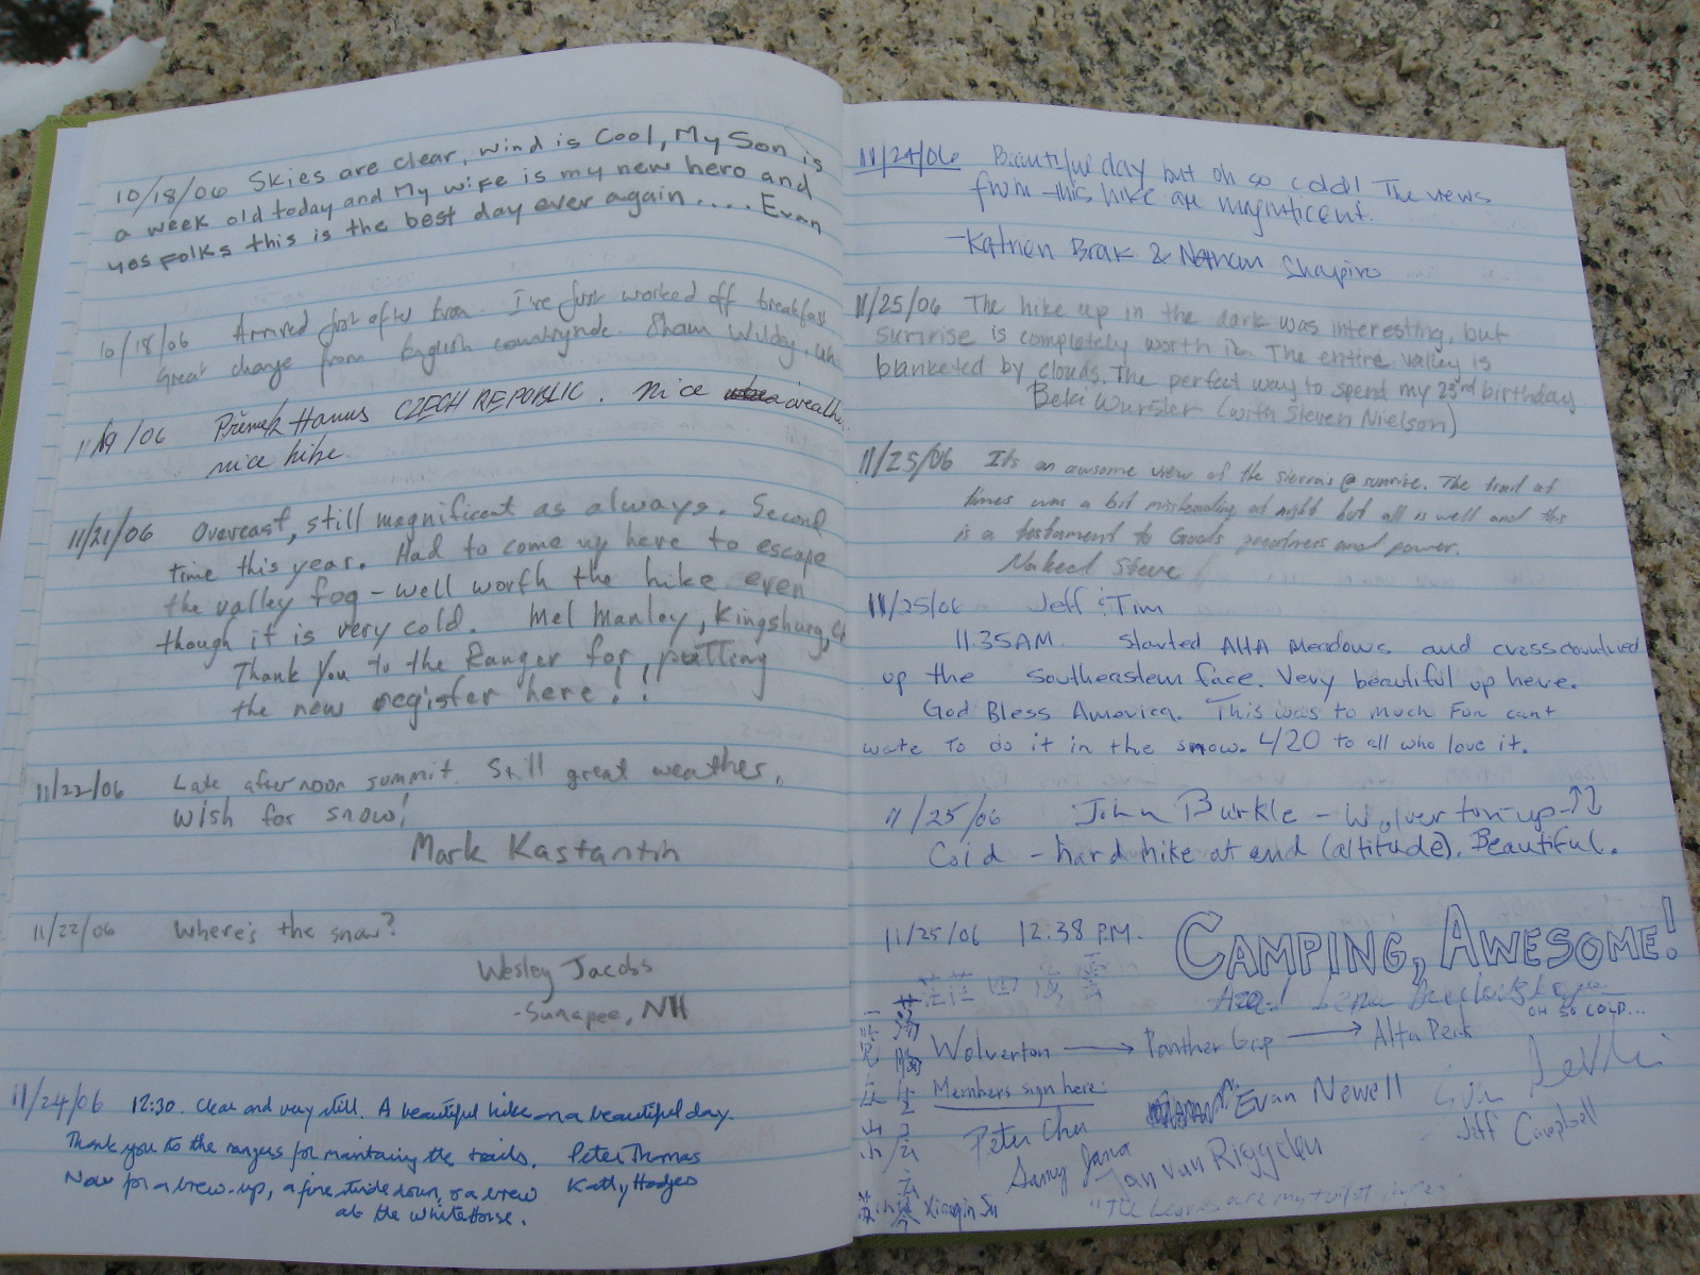 10/18/06 Skies are clear, wind is Cool, My Son is
a week old today and My wife is my new hero and
yes Folks this is the best day ever again.... Evan
10/18/06 Arrived just after Evan. I've just worked off breakfast
Great change from English countryside. Sham Wildy, UK
11/19/06 Hanus CZECH REPUBLIC. nice
nice hike
11/21/06 Overcast, still magnificent as always. Second
time this year. Had to come up here to escape
the valley fog - well worth the hike even
though it is very cold. Mel Manley, Kingsburg, CA
Thank You to the Ranger for putting
the new register here!!
11/22/06 Late afternoon summit. Still great weather,
wish for snow!
Mark Kastantin
11/22/06 Where's the snow?
Wesley Jacobs
-Sunapee, NH
11/24/06 12:30. Clear and very still. A beautiful hike on a beautiful day.
Thank you to the rangers for maintaining the trails. Peter Thomas
Now for a brew-up, a fine stride down, & a brew Kathy Hodges
at the White Horse.
11/24/06 Beautiful day but oh so cold! The views
from this hike are magnificent.
-Katrien Brak & Nathan Shapiro
11/25/06 The hike up in the dark was interesting, but
sunrise is completely worth it. The entire valley is
blanketed by clouds. The perfect way to spend my 23rd birthday
Beki Wurster (with Steven Nielson)
11/25/06 Its an awsome view of the sierra's @ sunrise. The trail at
times was a bit misleading at night but all is well and this
is a testament to Gods greatness and power.
Naked Steve
11/25/06 Jeff & Tim
11:35AM. Started AHA Meadows and crosscountried
up the Southeastern face. Very beautiful up here.
God Bless America. This was to much Fun cant
wate To do it in the snow. 4/20 to all who love it.
11/25/06 John Burkle - Wolverton-up ↑↓
Cold - hard hike at end (altitude). Beautiful.
11/25/06 12:38 P.M. CAMPING, AWESOME!
OH SO COLD...
Wolverton → Panther Gap → Alta Peak
Members sign here:
Evan Newell
Peter Chu
Jeff Campbell
Jan van Riggelen
Xiaoqin Su